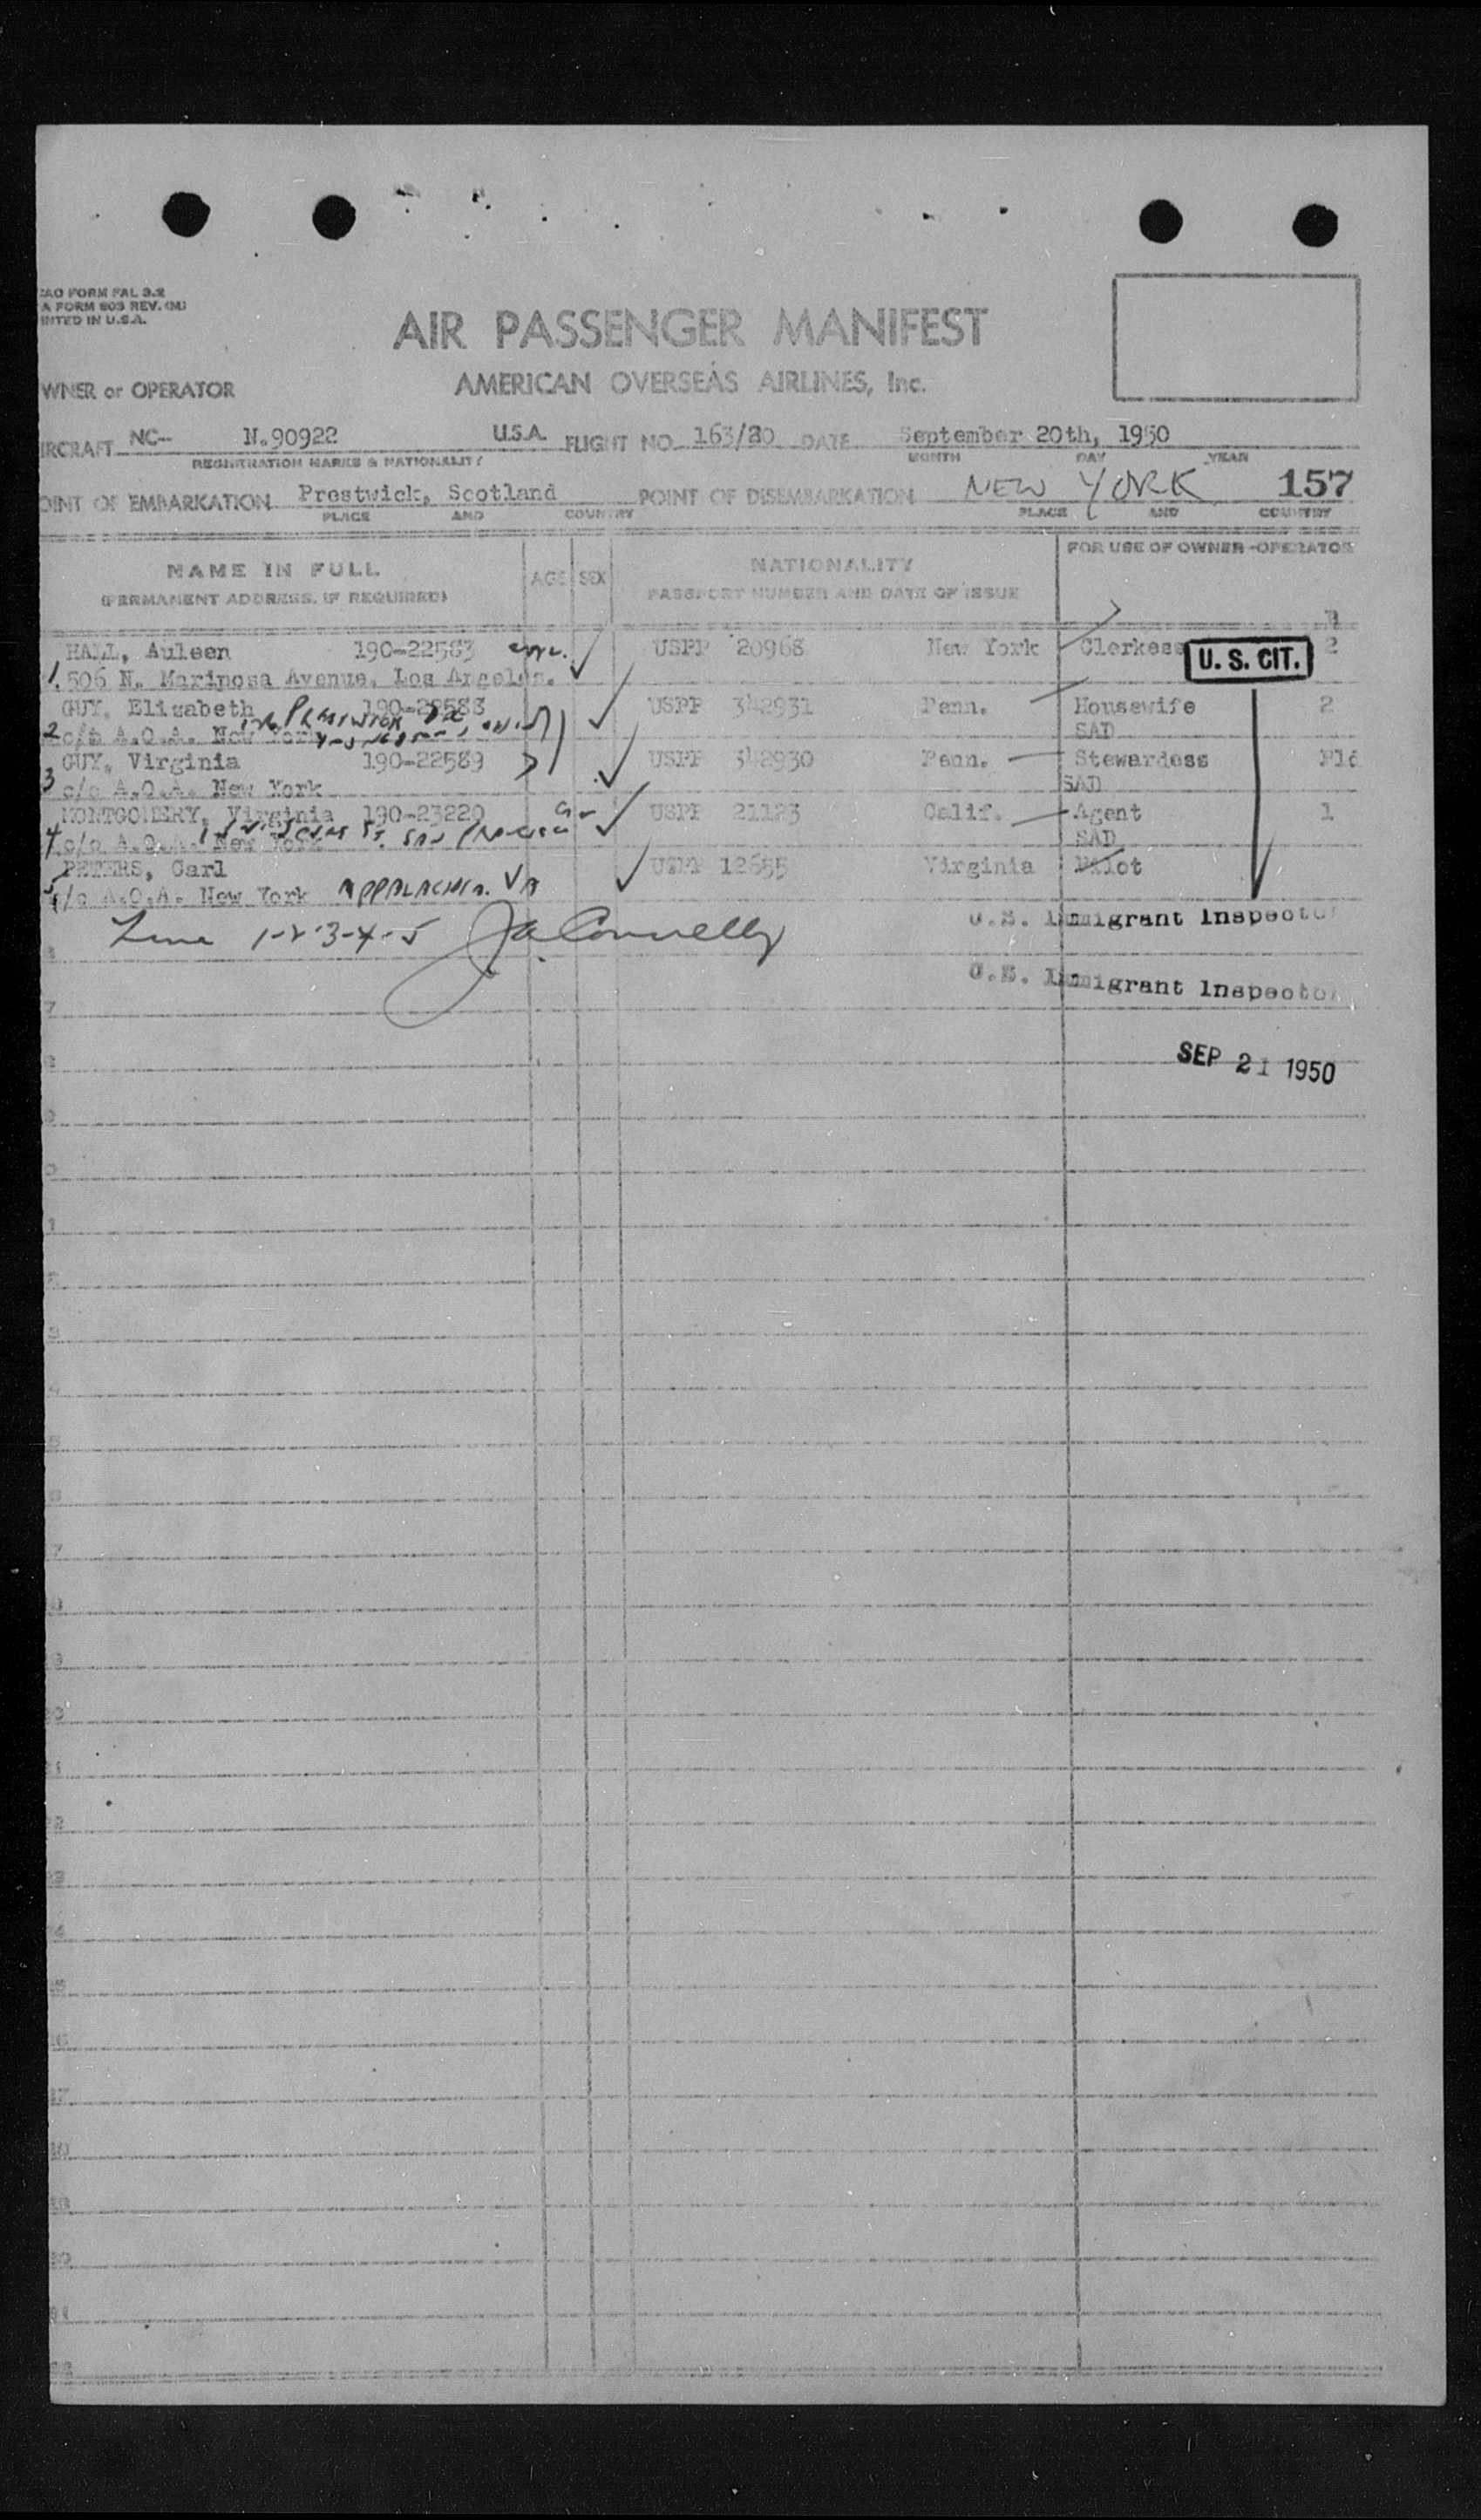 AO FORM FAL 3.2
A FORM 803 REV. (M)
INTED IN U.S.A.
AIR PASSENGER MANIFEST
WNER or OPERATOR
AMERICAN OVERSEAS AIRLINES, Inc.
IRCRAFT NC-- N.90922 U.S.A. FLIGHT NO. 163/20 DATE September 20th, 1950
REGISTRATION MARKS & NATIONALITY MONTH DAY YEAR
OINT OF EMBARKATION Prestwick, Scotland POINT OF DISEMBARKATION NEW YORK 157
PLACE AND COUNTRY PLACE AND COUNTRY
NAME IN FULL
(PERMANENT ADDRESS, IF REQUIRED)
AGE SEX
NATIONALITY
PASSPORT NUMBER AND DATE OF ISSUE
FOR USE OF OWNER-OPERATOR
HALL, Auleen 190-22583 USPP 20968 New York Clerkess U. S. CIT. 2
1. 506 N. Mariposa Avenue, Los Angeles.
GUY, Elizabeth 190-22588 USPP 342931 Penn. Housewife 2
2 c/o A.O.A. New York SAD
GUY, Virginia 190-22589 USPP 342930 Penn. Stewardess
3 c/o A.O.A. New York SAD
MONTGOMERY, Virginia 190-23220 USPP 21123 Calif. Agent 1
4 c/o A.O.A. New York SAD
PETERS, Carl USPP 12655 Virginia Pilot
5 c/o A.O.A. New York APPALACHIA. VA
Line 1-2-3-4-5 J.A. Connelly
U.S. Immigrant Inspector
U.S. Immigrant Inspector
7
SEP 21 1950